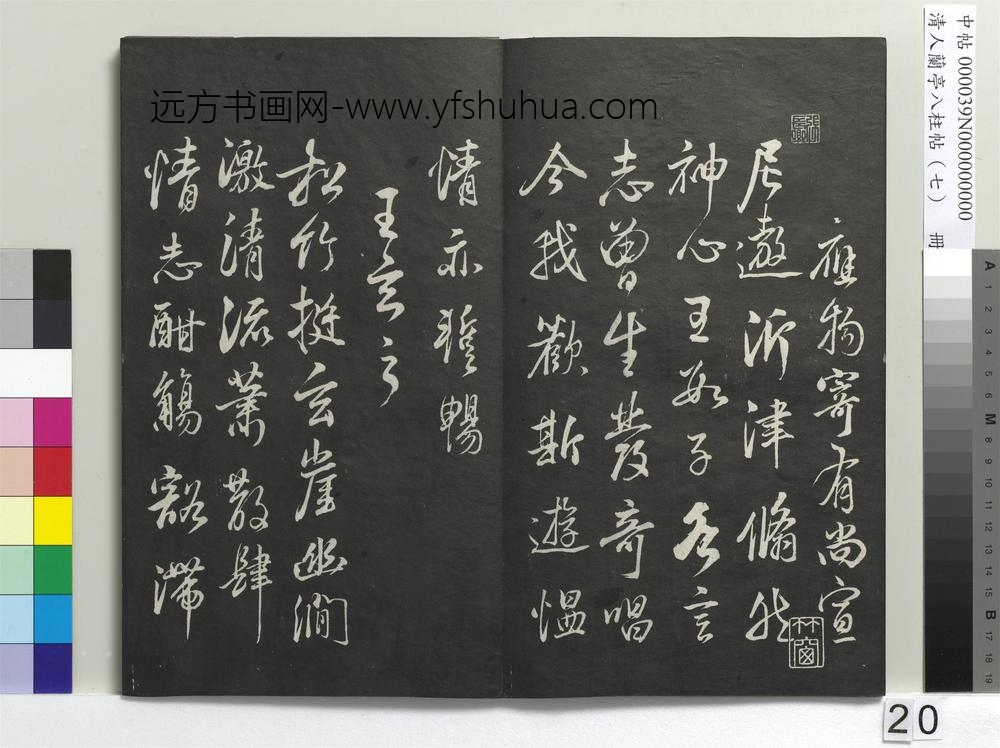 中帖 000039N000000000
清人蘭亭八柱帖（七） 冊
應物寄有尚宣
尼遨沂津翛然
神心王數子各言
志曾生發奇唱
今我歡斯遊慍
情亦暫暢
王玄之
松竹挺玄崖幽澗
激清流蕭散肆
情志酣觴豁滯
竹窗
远方书画网-www.yfshuhua.com
A 1 2 3 4 5 6 M 8 9 10 11 12 13 14 15 B 17 18 19
20